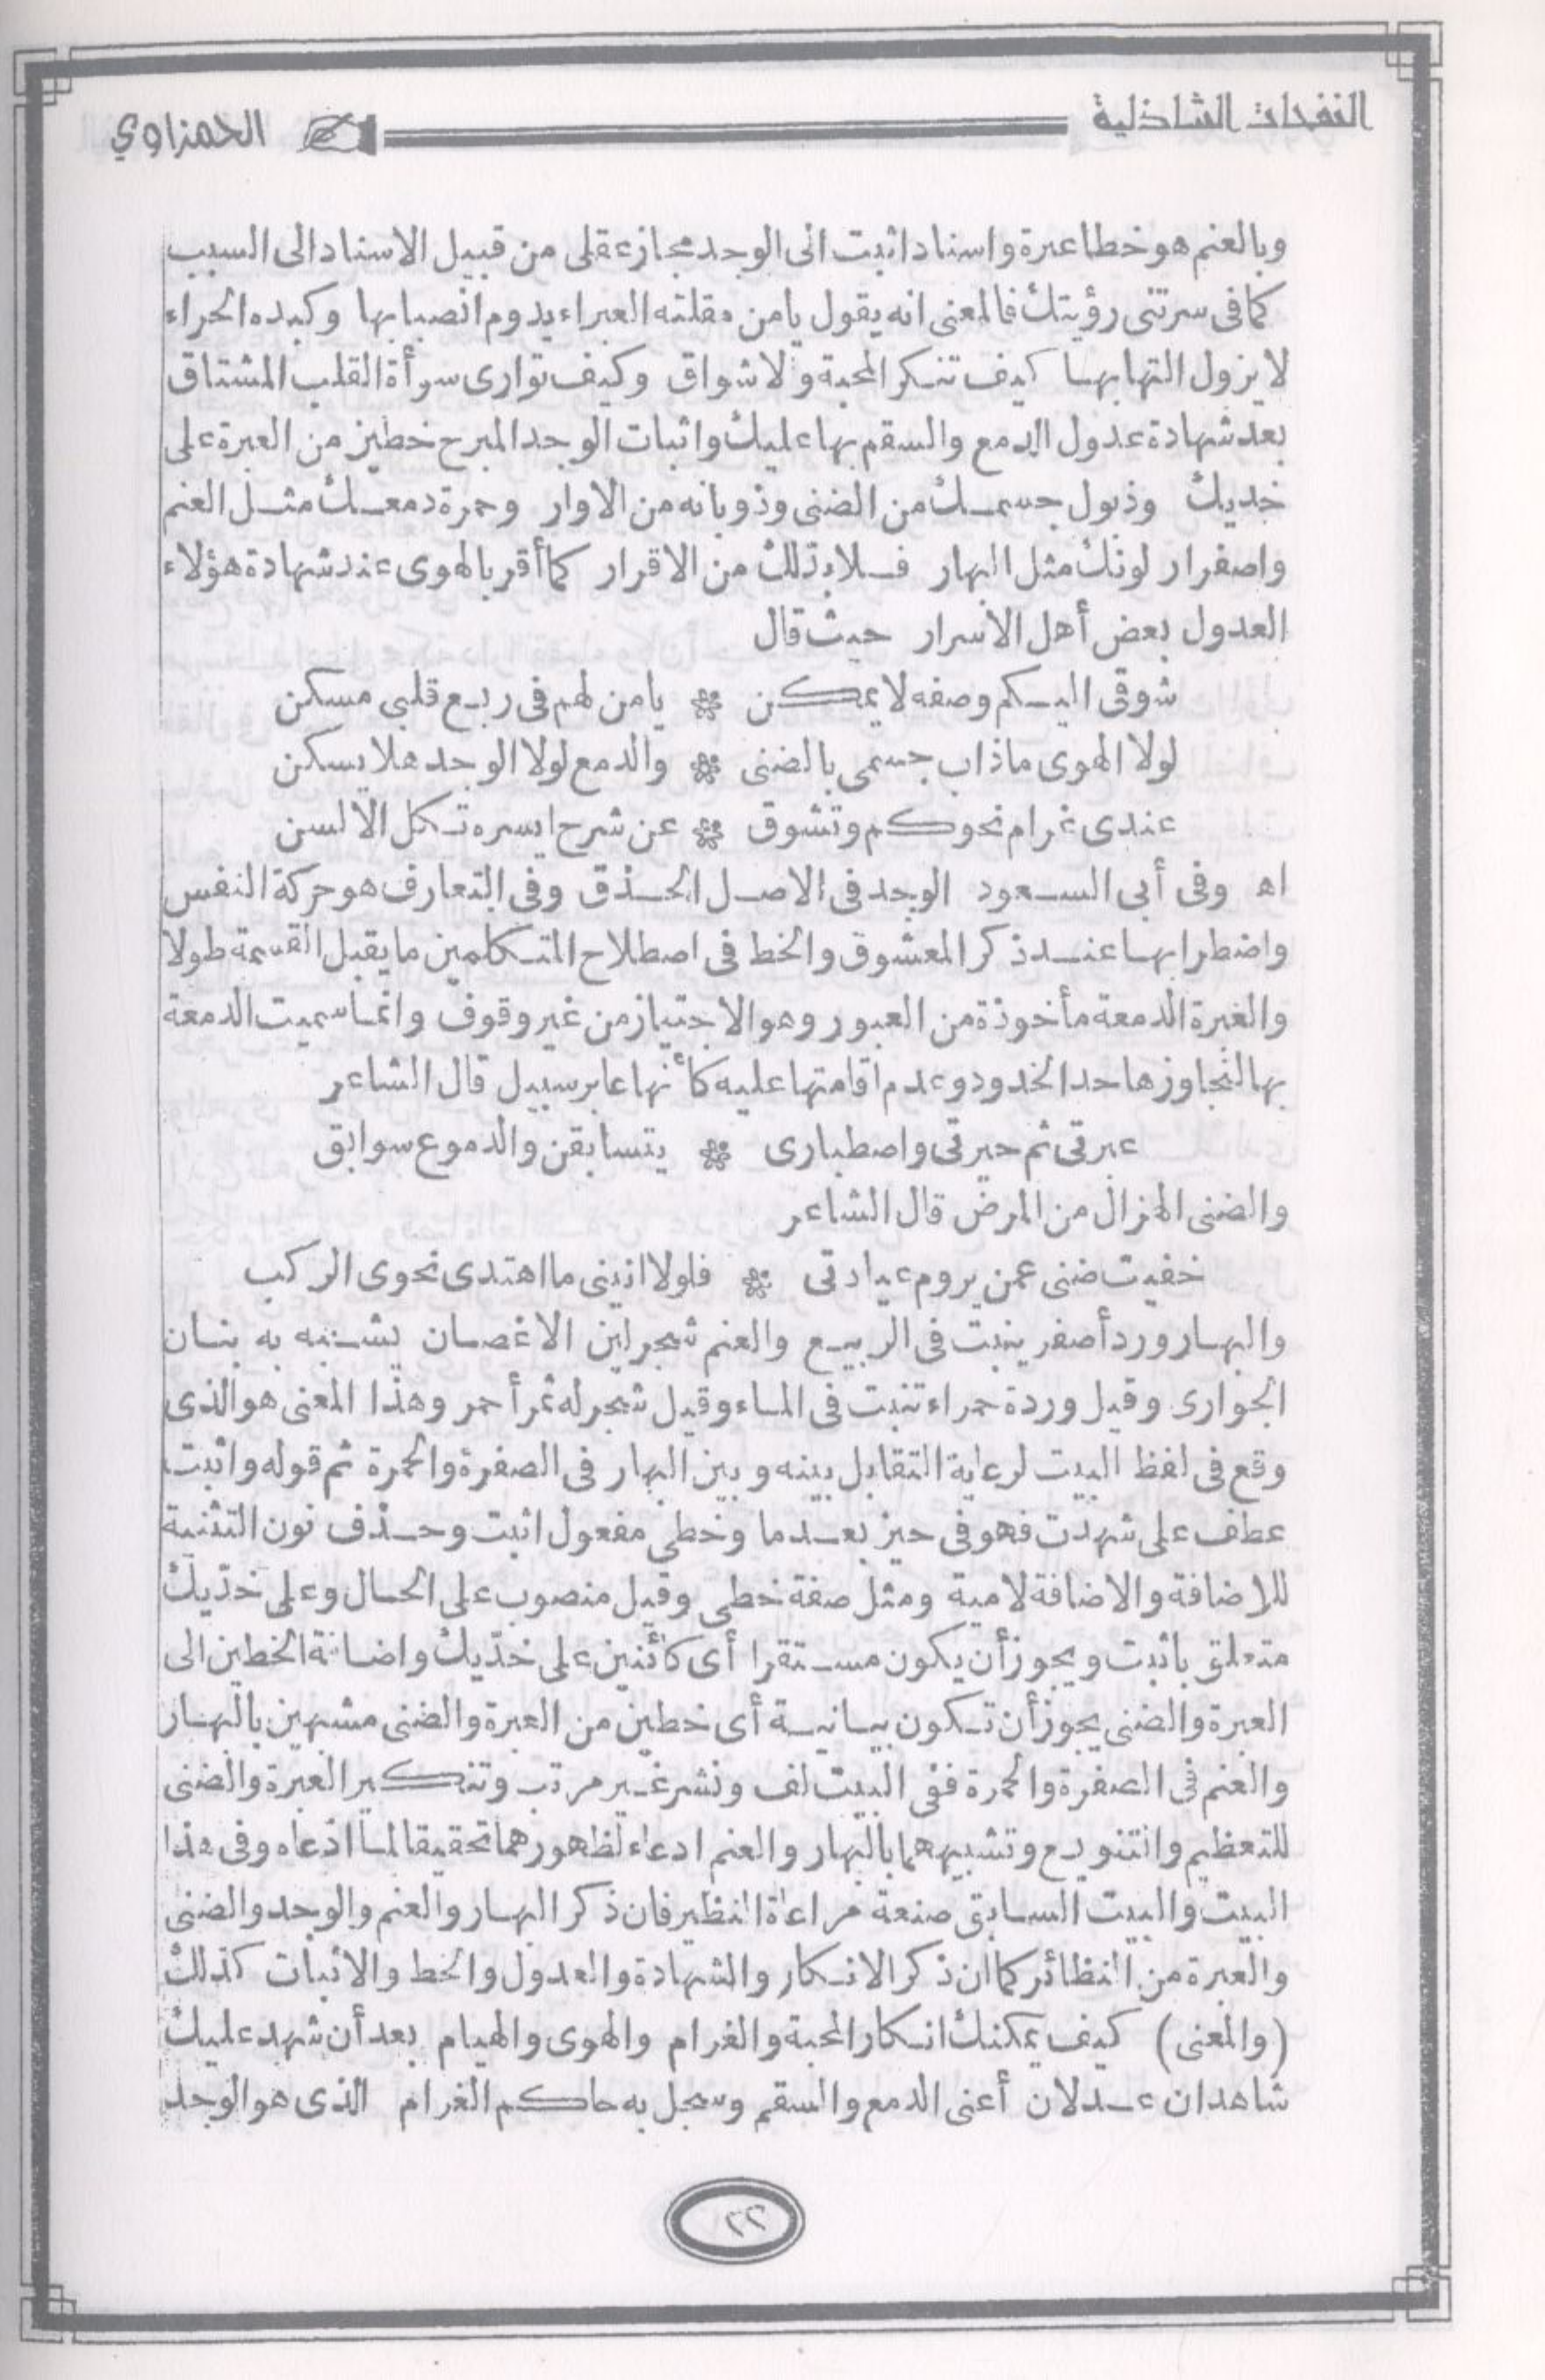 النفحات الشاذلية
الحمزاوي
وبالعنم هو خطا عبرة واسناد اثبت الى الوجد مجاز عقلى من قبيل الاسناد الى السبب
كما فى سرتنى رؤيتك فالمعنى انه يقول يا من مقلته العبراء يدوم انصبابها وكبده الحراء
لا يزول التهابها كيف تنكر المحبة والاشواق وكيف توارى سوأة القلب المشتاق
بعد شهادة عدول الدمع والسقم بها عليك واثبات الوجد المبرح خطين من العبرة على
خديك وذبول جسمك من الضنى وذوبانه من الاوار وحمرة دمعك مثل العنم
واصفرار لونك مثل البهار فلا بد لك من الاقرار كما أقر بالهوى عند شهادة هؤلاء
العدول بعض أهل الاسرار حيث قال
شوقى اليكم وصفه لا يمكن ❀ يا من لهم فى ربع قلبى مسكن
لولا الهوى ما ذاب جسمى بالضنى ❀ والدمع لولا الوجد هلا يسكن
عندى غرام نحوكم وتشوق ❀ عن شرح ايسره تكل الالسن
اه وفى أبى السعود الوجد فى الاصل الحذق وفى التعارف هو حركة النفس
واضطرابها عند ذكر المعشوق والخط فى اصطلاح المتكلمين ما يقبل القسمة طولا
والعبرة الدمعة مأخوذة من العبور وهو الاجتياز من غير وقوف وانما سميت الدمعة
بها لتجاوزها حد الخدود وعدم اقامتها عليه كأنها عابر سبيل قال الشاعر
عبرتى ثم حيرتى واصطبارى ❀ يتسابقن والدموع سوابق
والضنى الهزال من المرض قال الشاعر
خفيت ضنى عمن يروم عيادتى ❀ فلولا انينى ما اهتدى نحوى الركب
والبهار ورد أصفر ينبت فى الربيع والعنم شجر لين الاغصان يشبه به بنان
الجوارى وقيل وردة حمراء تنبت فى الماء وقيل شجر له ثمر أحمر وهذا المعنى هو الذى
وقع فى لفظ البيت لرعاية التقابل بينه وبين البهار فى الصفرة والحمرة ثم قوله واثبت
عطف على شهدت فهو فى حيز بعد ما وخطى مفعول اثبت وحذف نون التثنية
للاضافة والاضافة لامية ومثل صفة خطى وقيل منصوب على الحال وعلى خدّيك
متعلق باثبت ويجوز أن يكون مستقرا أى كائنين على خدّيك واضافة الخطين الى
العبرة والضنى يجوز أن تكون بيانية أى خطين من العبرة والضنى مشبهين بالبهار
والعنم فى الصفرة والحمرة ففى البيت لف ونشر غير مرتب وتنكير العبرة والضنى
للتعظيم والتنويع وتشبيههما بالبهار والعنم ادعاء لظهورهما تحقيقا لما ادّعاه وفى هذا
البيت والبيت السابق صنعة مراعاة النظير فان ذكر البهار والعنم والوجد والضنى
والعبرة من النظائر كما ان ذكر الانكار والشهادة والعدول والخط والاثبات كذلك
(والمعنى) كيف يمكنك انكار المحبة والغرام والهوى والهيام بعد أن شهد عليك
شاهدان عدلان أعنى الدمع والسقم وسجل به حاكم الغرام الذى هو الوجد
٢٢